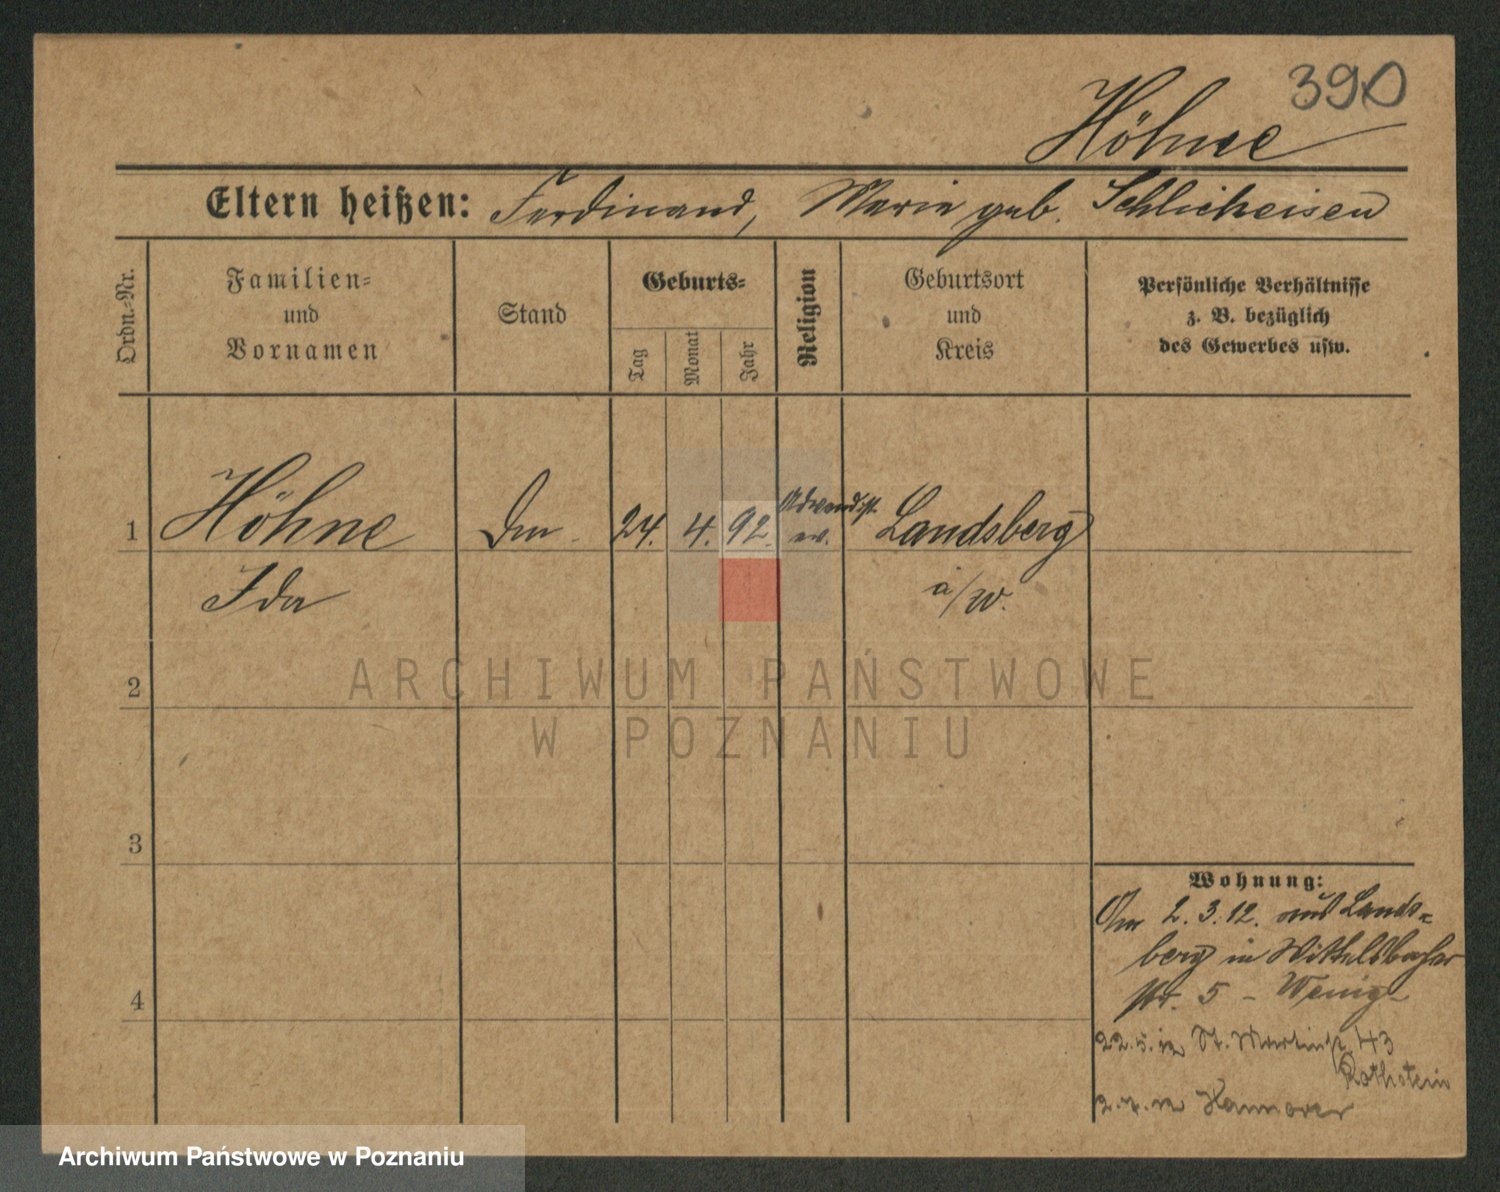 390
Höhne
Eltern heißen: Ferdinand, Marie geb. Schlicheisen
Ordn.-Nr.
Familien-
und
Vornamen
Stand
Geburts-
Tag
Monat
Jahr
Religion
Geburtsort
und
Kreis
Persönliche Verhältnisse
z. B. bezüglich
des Gewerbes usw.
1 Höhne 24. 4. 92. Landsberg
Ida a/W.
2
3
4
Wohnung:
Am 2.3.12. aus Lands-
berg in Wittelsbacher
str. 5 - Wenig
22.5.12 St. Martinstr. 43
Rothstein
2.7.12 Hannover
ARCHIWUM PAŃSTWOWE
W POZNANIU
Archiwum Państwowe w Poznaniu